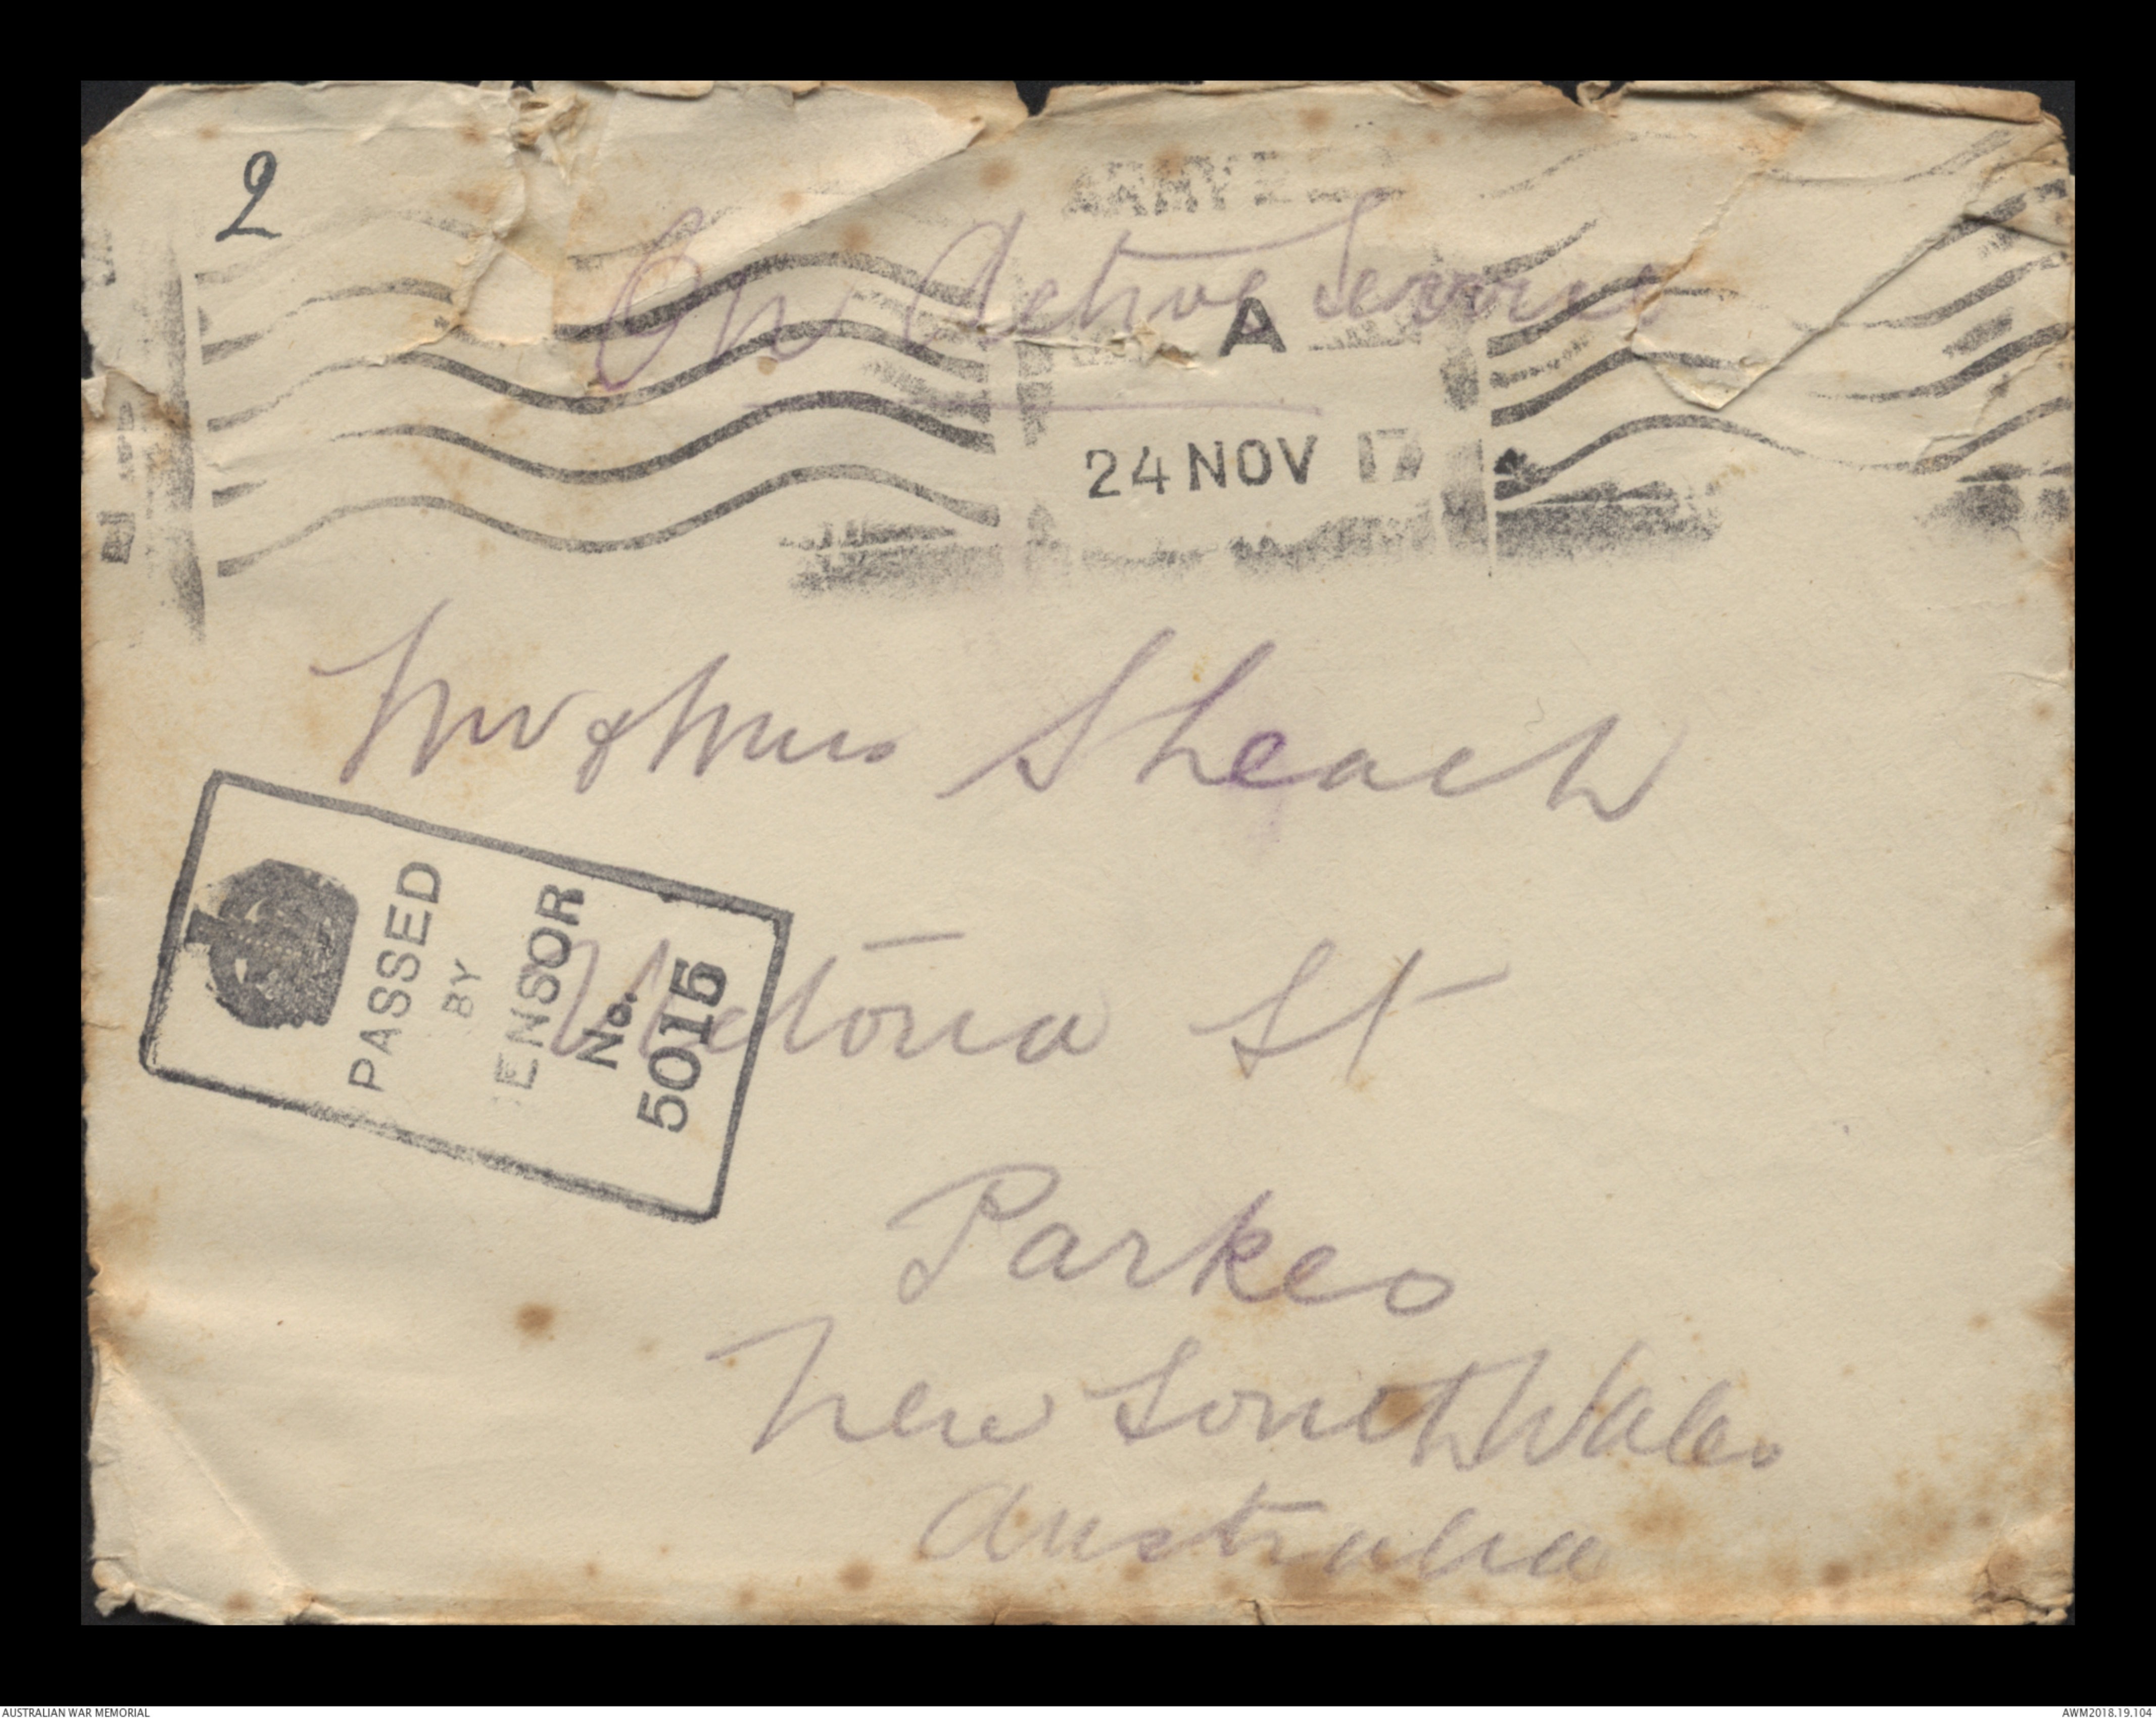 2
ARMY
On Active Service
A
24 NOV 17
Mr & Mrs Sheach
PASSED
BY
ENSOR
No.
5015
Victoria St
Parkes
New South Wales
Australia
AUSTRALIAN WAR MEMORIAL
AWM2018.19.104